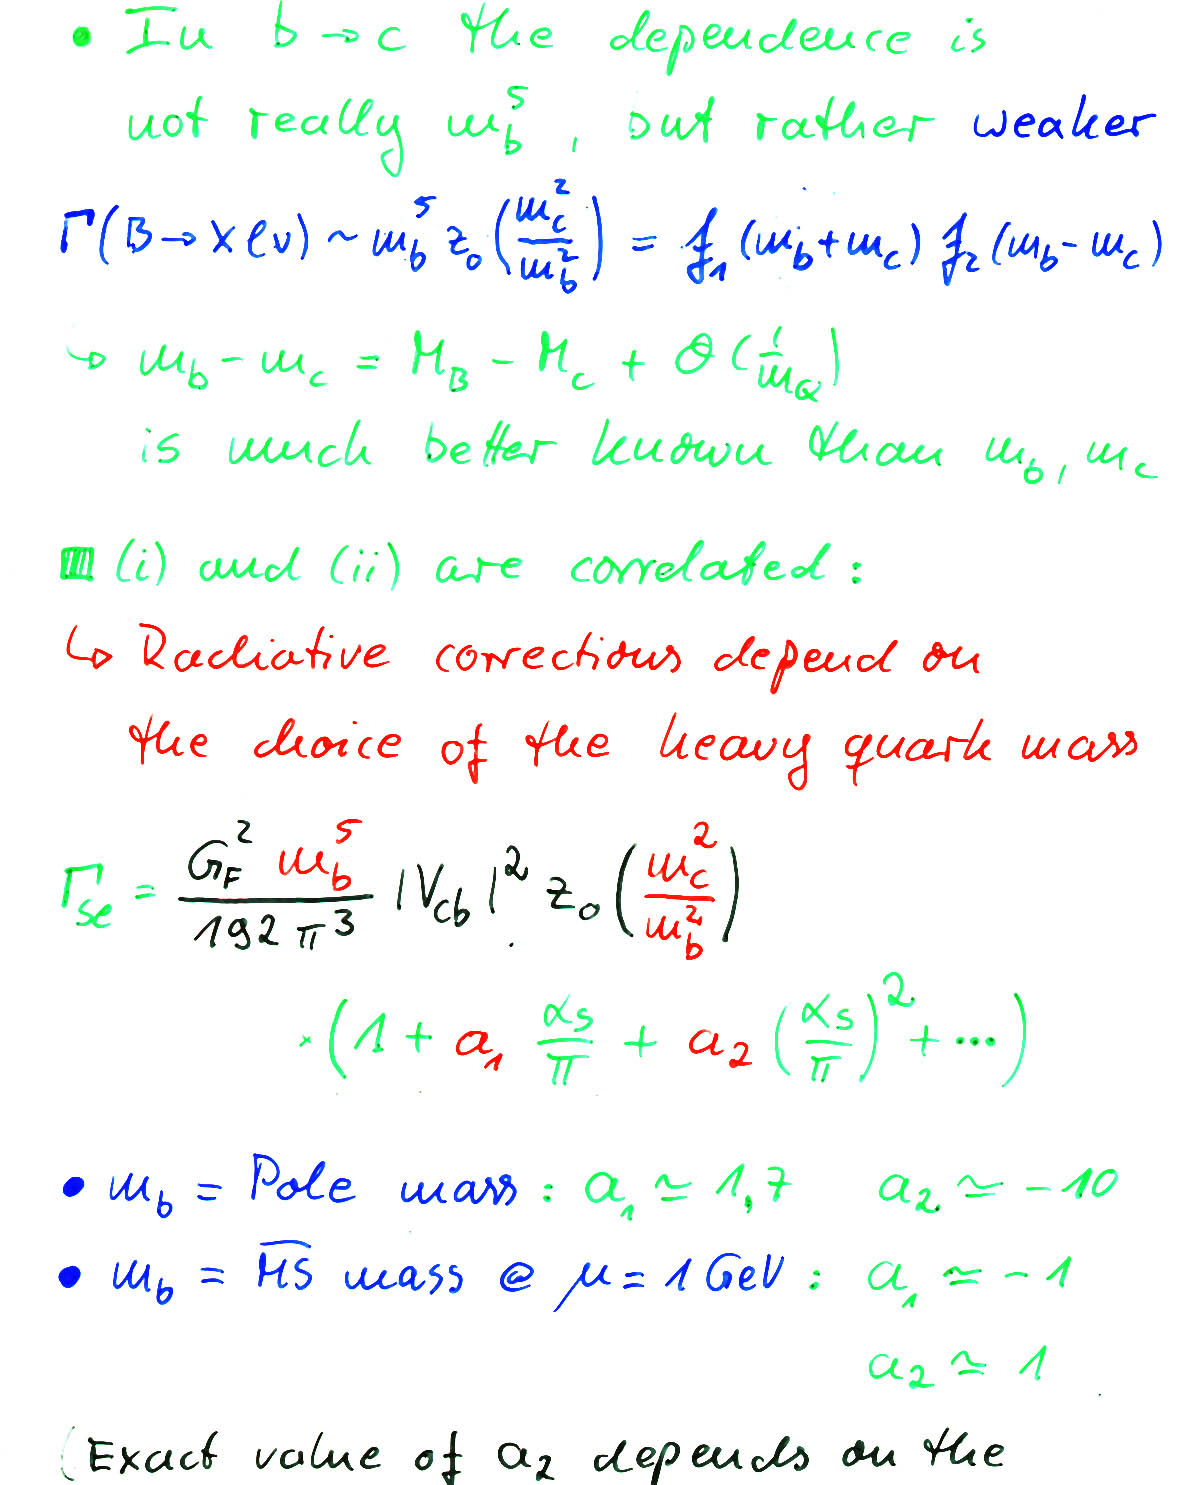 • In b → c the dependence is
not really m_b^5, but rather weaker
Γ(B → X ℓ ν) ~ m_b^5 z_0 (m_c^2 / m_b^2) = f_1 (m_b + m_c) f_2 (m_b - m_c)
↪ m_b - m_c = M_B - M_C + O(1/m_Q)
is much better known than m_b, m_c
■ (i) and (ii) are correlated:
↪ Radiative corrections depend on
the choice of the heavy quark mass
Γ_sl = G_F^2 m_b^5 / 192 π^3 |V_cb|^2 z_0 (m_c^2 / m_b^2)
· (1 + a_1 α_s/π + a_2 (α_s/π)^2 + ...)
• m_b = Pole mass : a_1 ≃ 1,7 a_2 ≃ -10
• m_b = \overline{MS} mass @ μ = 1 GeV : a_1 ≃ -1
a_2 ≃ 1
(Exact value of a_2 depends on the